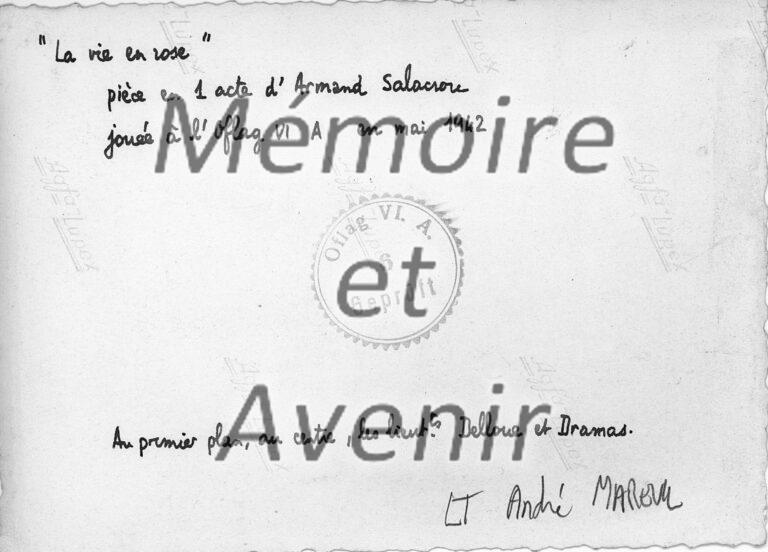 " La vie en rose "
pièce en 1 acte d' Armand Salacrou
jouée à l' Oflag VI A en mai 1942
Mémoire
et
Avenir
Oflag VI. A.
6
Geprüft
Agfa Lupex
Agfa Lupex
Agfa Lupex
Agfa Lupex
Agfa Lupex
Au premier plan, au centre, les lieut.ts et Dramas.
LT André